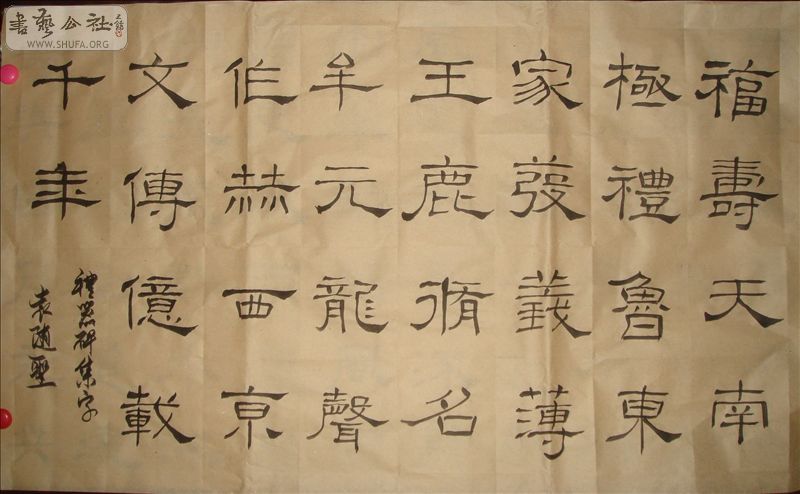 福壽天南
極禮魯東
家發義薄
王鹿脩名
牟元龍聲
作赫西京
文傳億載
千年
禮器碑集字
袁随聖
書藝公社
WWW.SHUFA.ORG